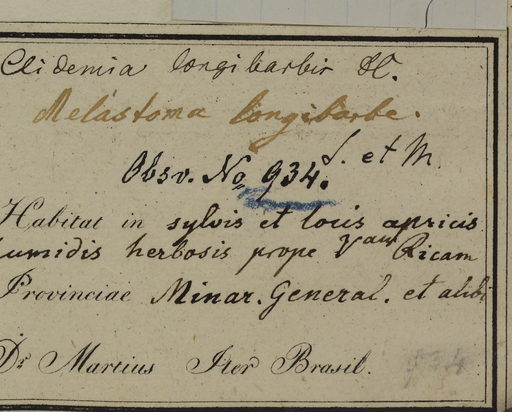 Clidemia longibarbis DC.
Melastoma longibarbe.
S. et M.
Obsv. No 934.
Habitat in sylvis et locis apricis
humidis herbosis prope Ricam
Provinciae Minar. General. et alibi
Dr. Martius Iter Brasil. 934